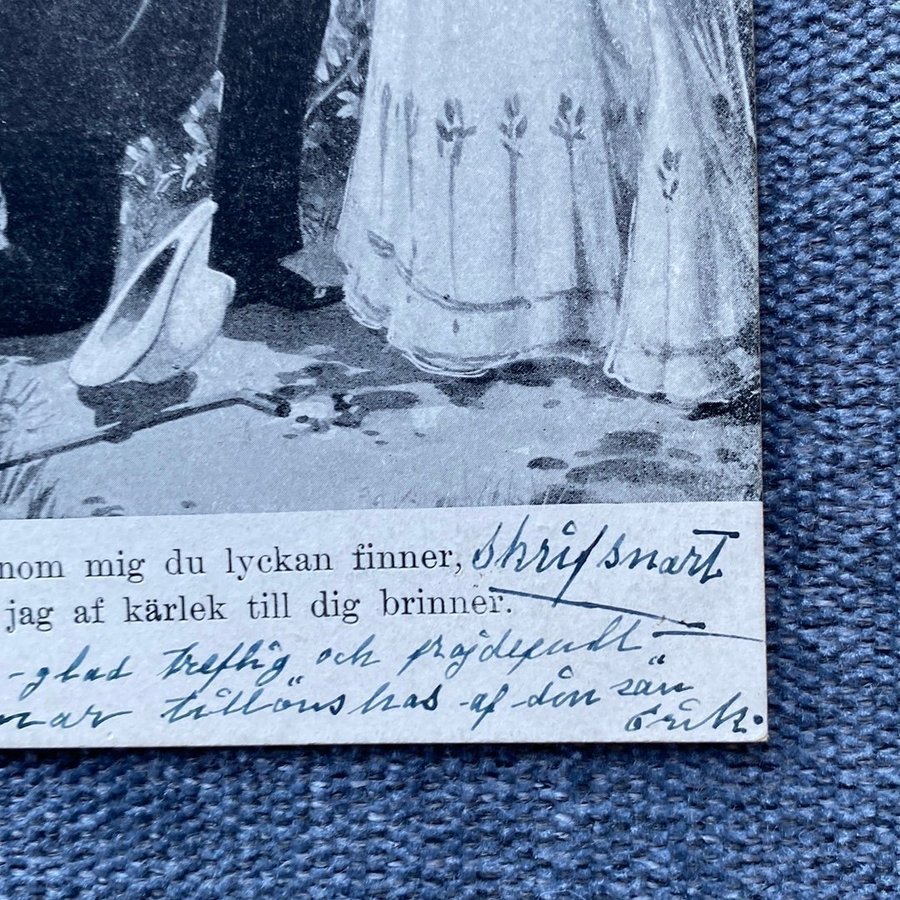 nom mig du lyckan finner, skrif snart
jag af kärlek till dig brinner.
-glad treflig och fröjdefull
tillönskas af din
Erik.